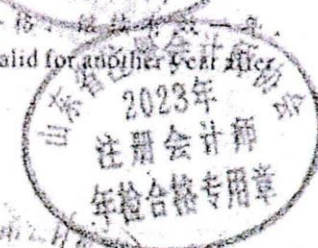 alid for another year after
山东省注册会计师协会
2023年
注册会计师
年检合格专用章